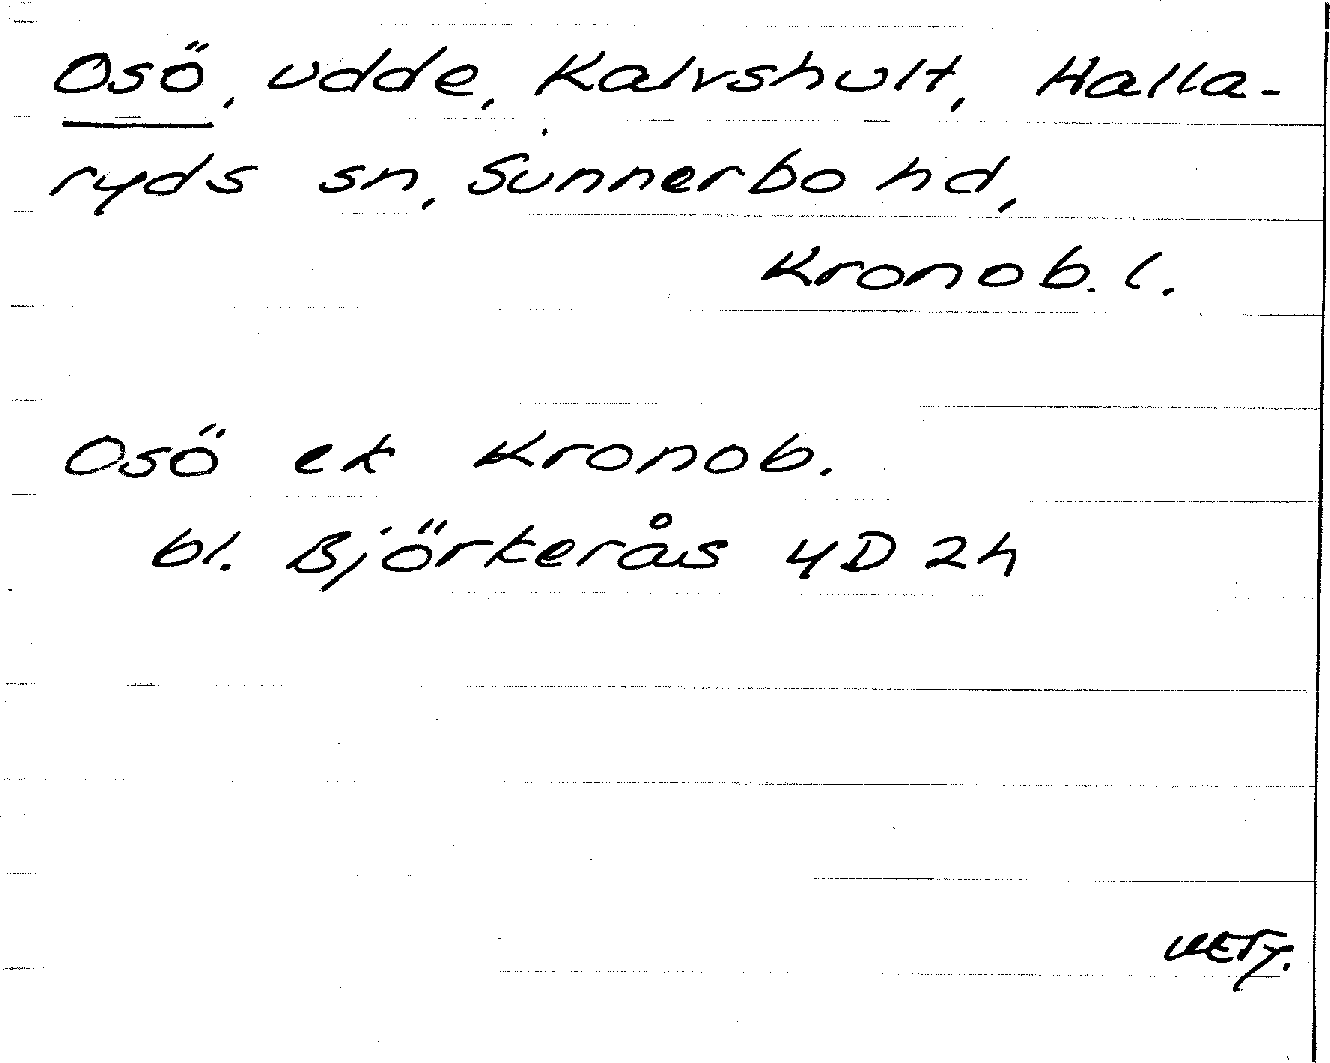 Osö, udde, Kalvshult, Halla-
ryds sn, Sunnerbo hd,
Kronob. l.
Osö ek Kronob.
bl. Björkerås 4D 2h